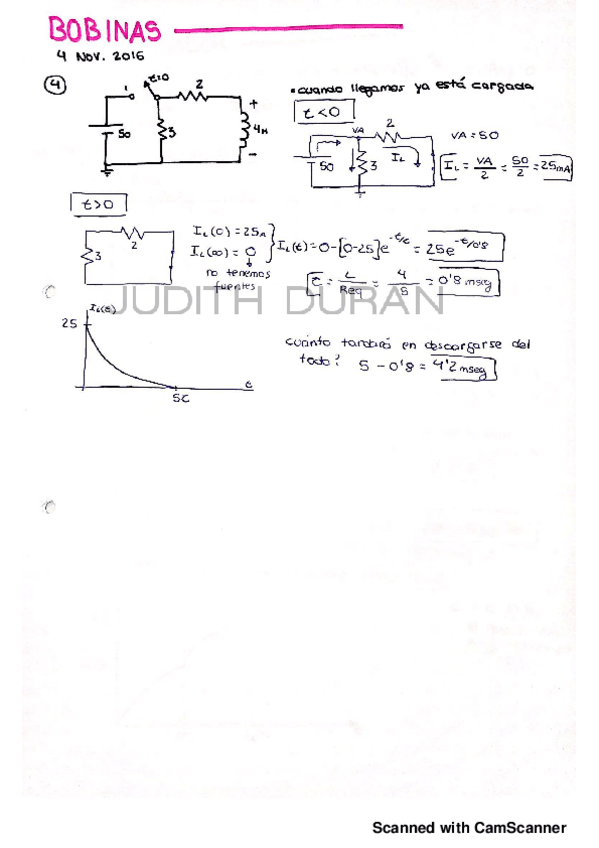 BOBINAS
4 NOV. 2016
4
t=0
2
1
50
3
4H
+
-
• cuando llegamos ya está cargada
t<0
VA
2
50
3
IL
VA = 50
IL = VA/2 = 50/2 = 25mA
t>0
2
3
IL(0) = 25A
IL(∞) = 0
no tenemos
fuentes
IL(t) = 0-[0-25]e^-t/τ = 25e^-t/0'8
τ = L/Req = 4/5 = 0'8 mseg
JUDITH DURAN
IL(t)
25
t
5τ
cuánto tardará en descargarse del
todo? 5-0'8 = 4'2 mseg
Scanned with CamScanner